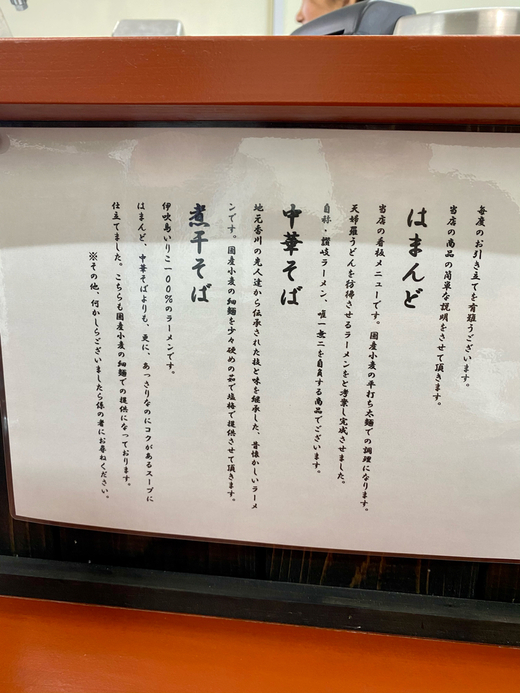 毎度のお引き立てを有難うございます。
当店の商品の簡単な説明をさせて頂きます。
はまんど
当店の看板メニューです。国産小麦の平打ち太麺での調理になります。
天婦羅うどんを彷彿させるラーメンをと考案し完成させました。
自称・讃岐ラーメン、唯一無二を自負する商品でございます。
中華そば
地元香川の先人達から伝承された技と味を継承した、昔懐かしいラーメ
ンです。国産小麦の細麺を少々硬めの茹で塩梅で提供させて頂きます。
煮干そば
伊吹島いりこ一〇〇%のラーメンです。
はまんど、中華そばよりも、更に、あっさりなのにコクがあるスープに
仕立てました。こちらも国産小麦の細麺での提供になっております。
※その他、何かしらございましたら係の者にお尋ねください。